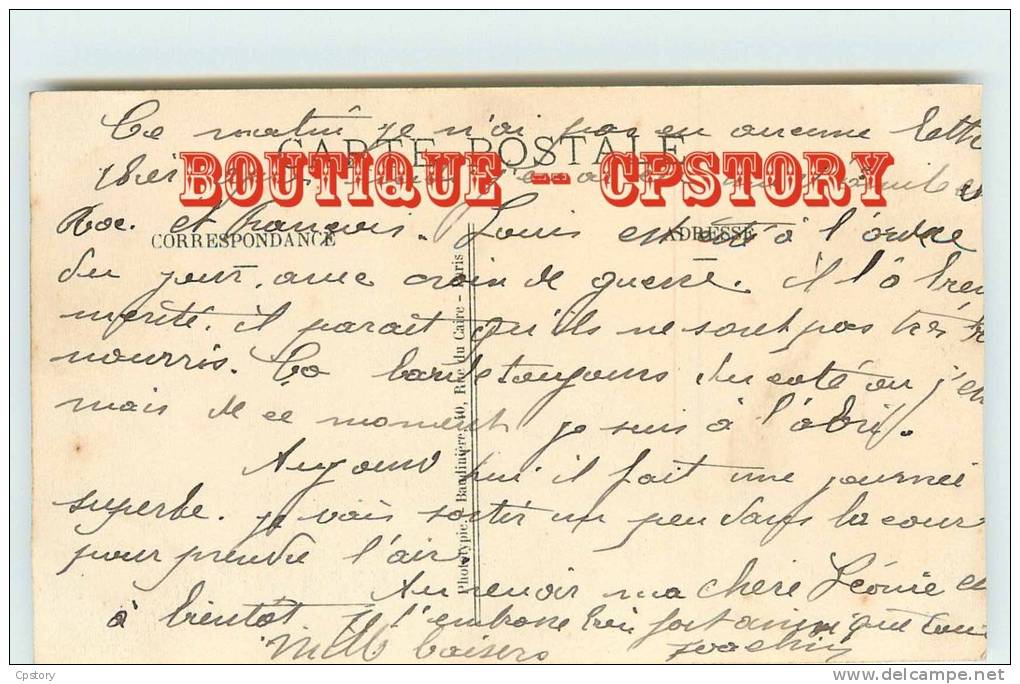 Ce matin je n'ai pas eu aucune lettr
CARTE POSTALE
BOUTIQUE -- CPSTORY
Hier
Roc. et François. Louis est à l'ordre
CORRESPONDANCE
ADRESSE
du jour, avec croix de guerre. il l'a bien
merité. il parait qu'ils ne sont pas très
nourris. Ça barde toujours du coté ou j'et
mais de ce moment je suis à l'abri.
Aujourd'hui il fait une journée
superbe. je vais sortir un peu dans la cour
pour prendre l'air
Au revoir ma chère Léonie et
à bientôt je t'embrasse bien fort ainsi que
mille baisers Joachim
Phototypie. Baudinière, 40, Rue du Caire - Paris
Cpstory
delcampe.net